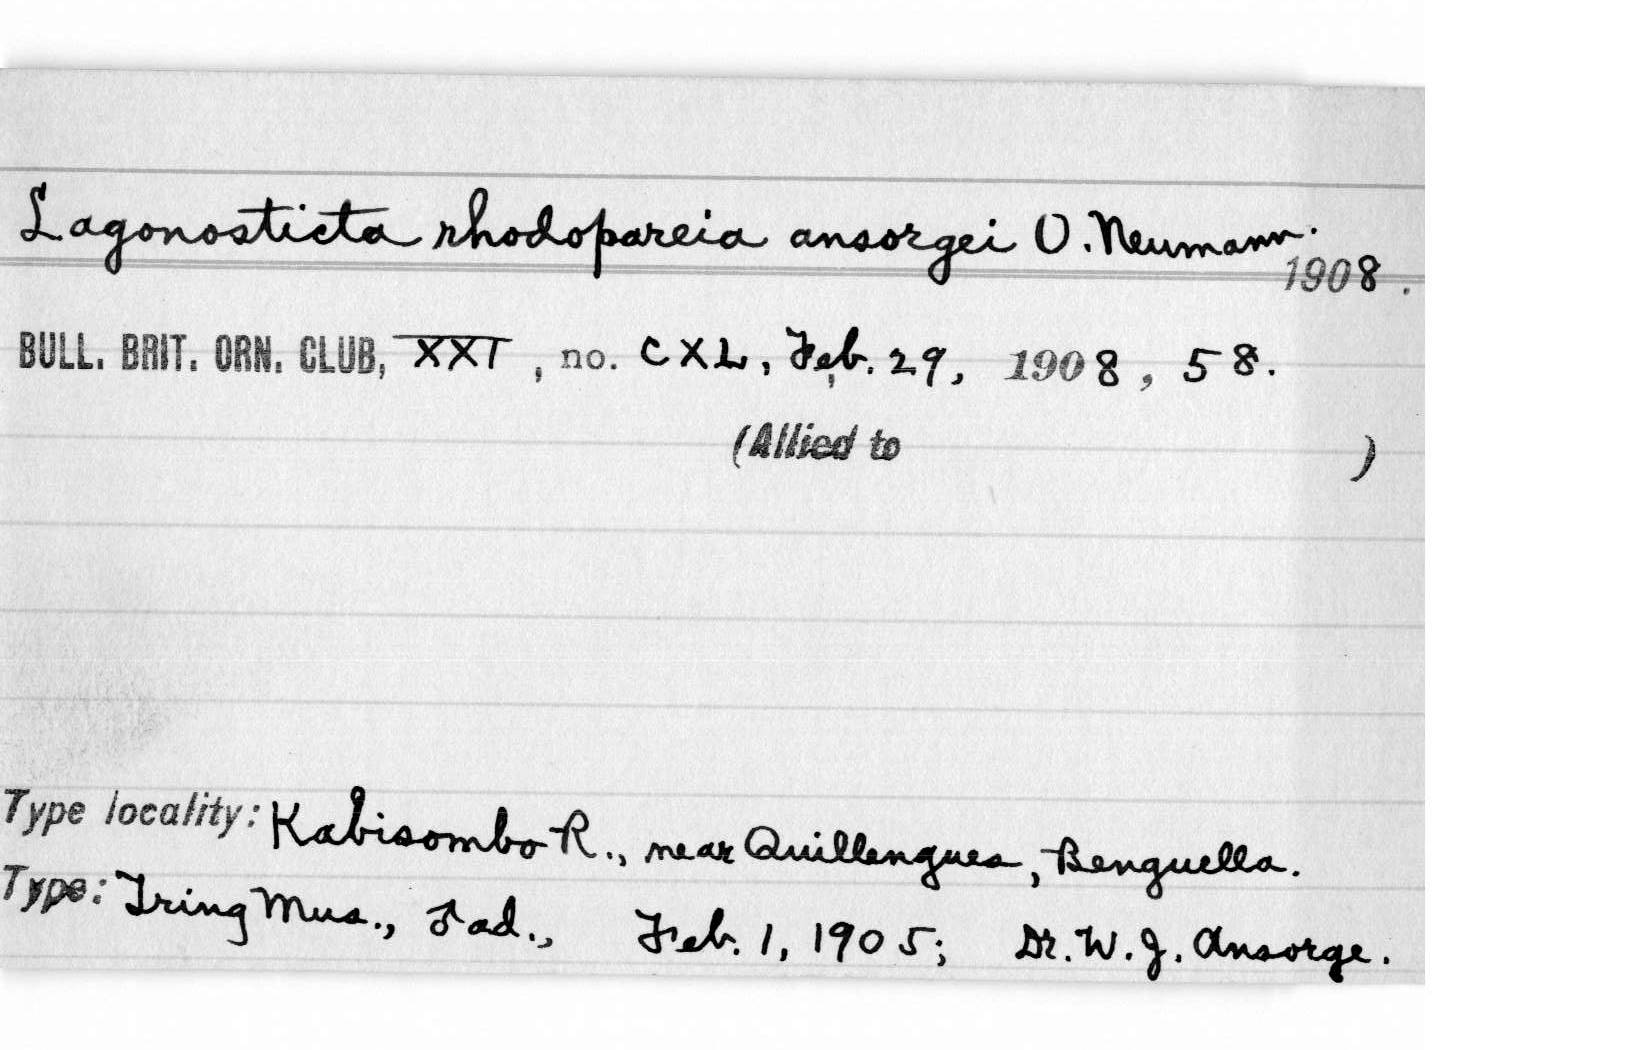 Lagonosticta rhodopareia ansorgei O. Neumann.
1908.
BULL. BRIT. ORN. CLUB, XXI, no. CXL, Feb. 29, 1908, 58.
(Allied to )
Type locality: Kabisombo R., near Quillengues, Benguella.
Type: Tring Mus., ♂ ad., Feb. 1, 1905; Dr. W. J. Ansorge.